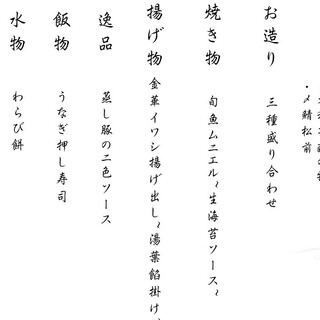 ・〆鯖松前
お造り　三種盛り合わせ
焼き物　旬魚ムニエル～生海苔ソース～
揚げ物　金華イワシ揚げ出し～湯葉餡掛け～
逸品　蒸し豚の二色ソース
飯物　うなぎ押し寿司
水物　わらび餅